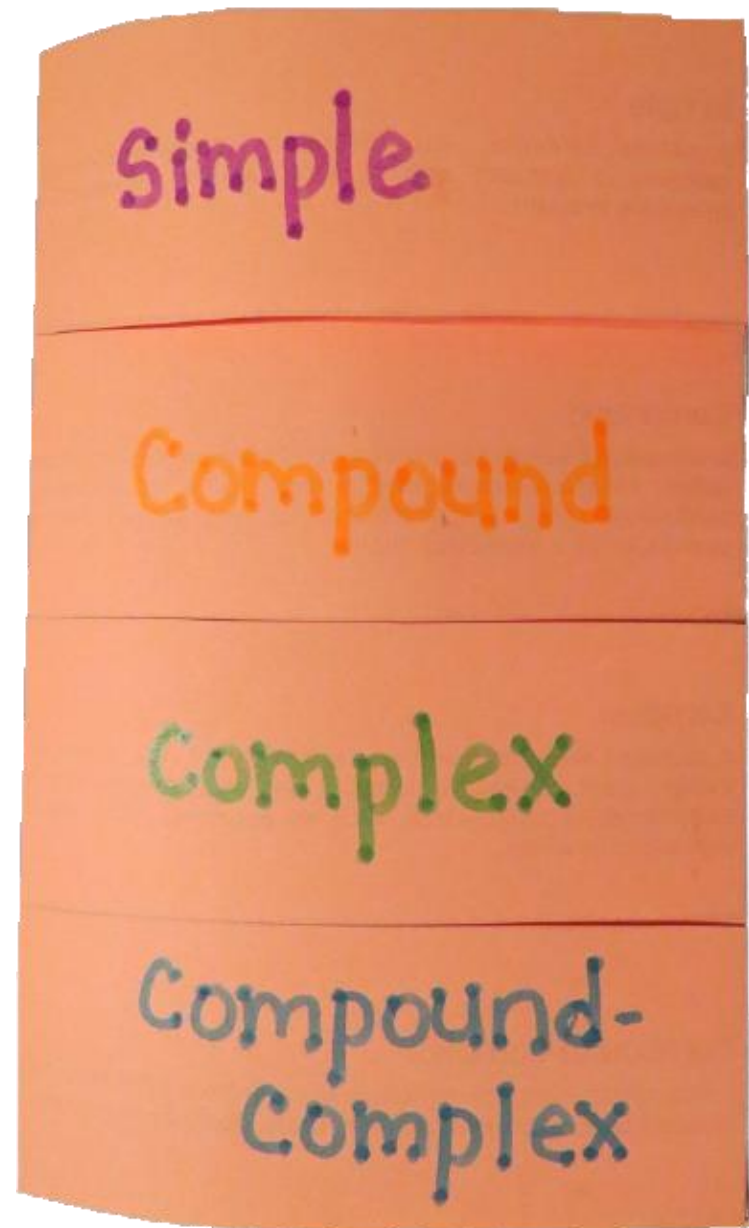 Simple
Compound
Complex
Compound-
Complex